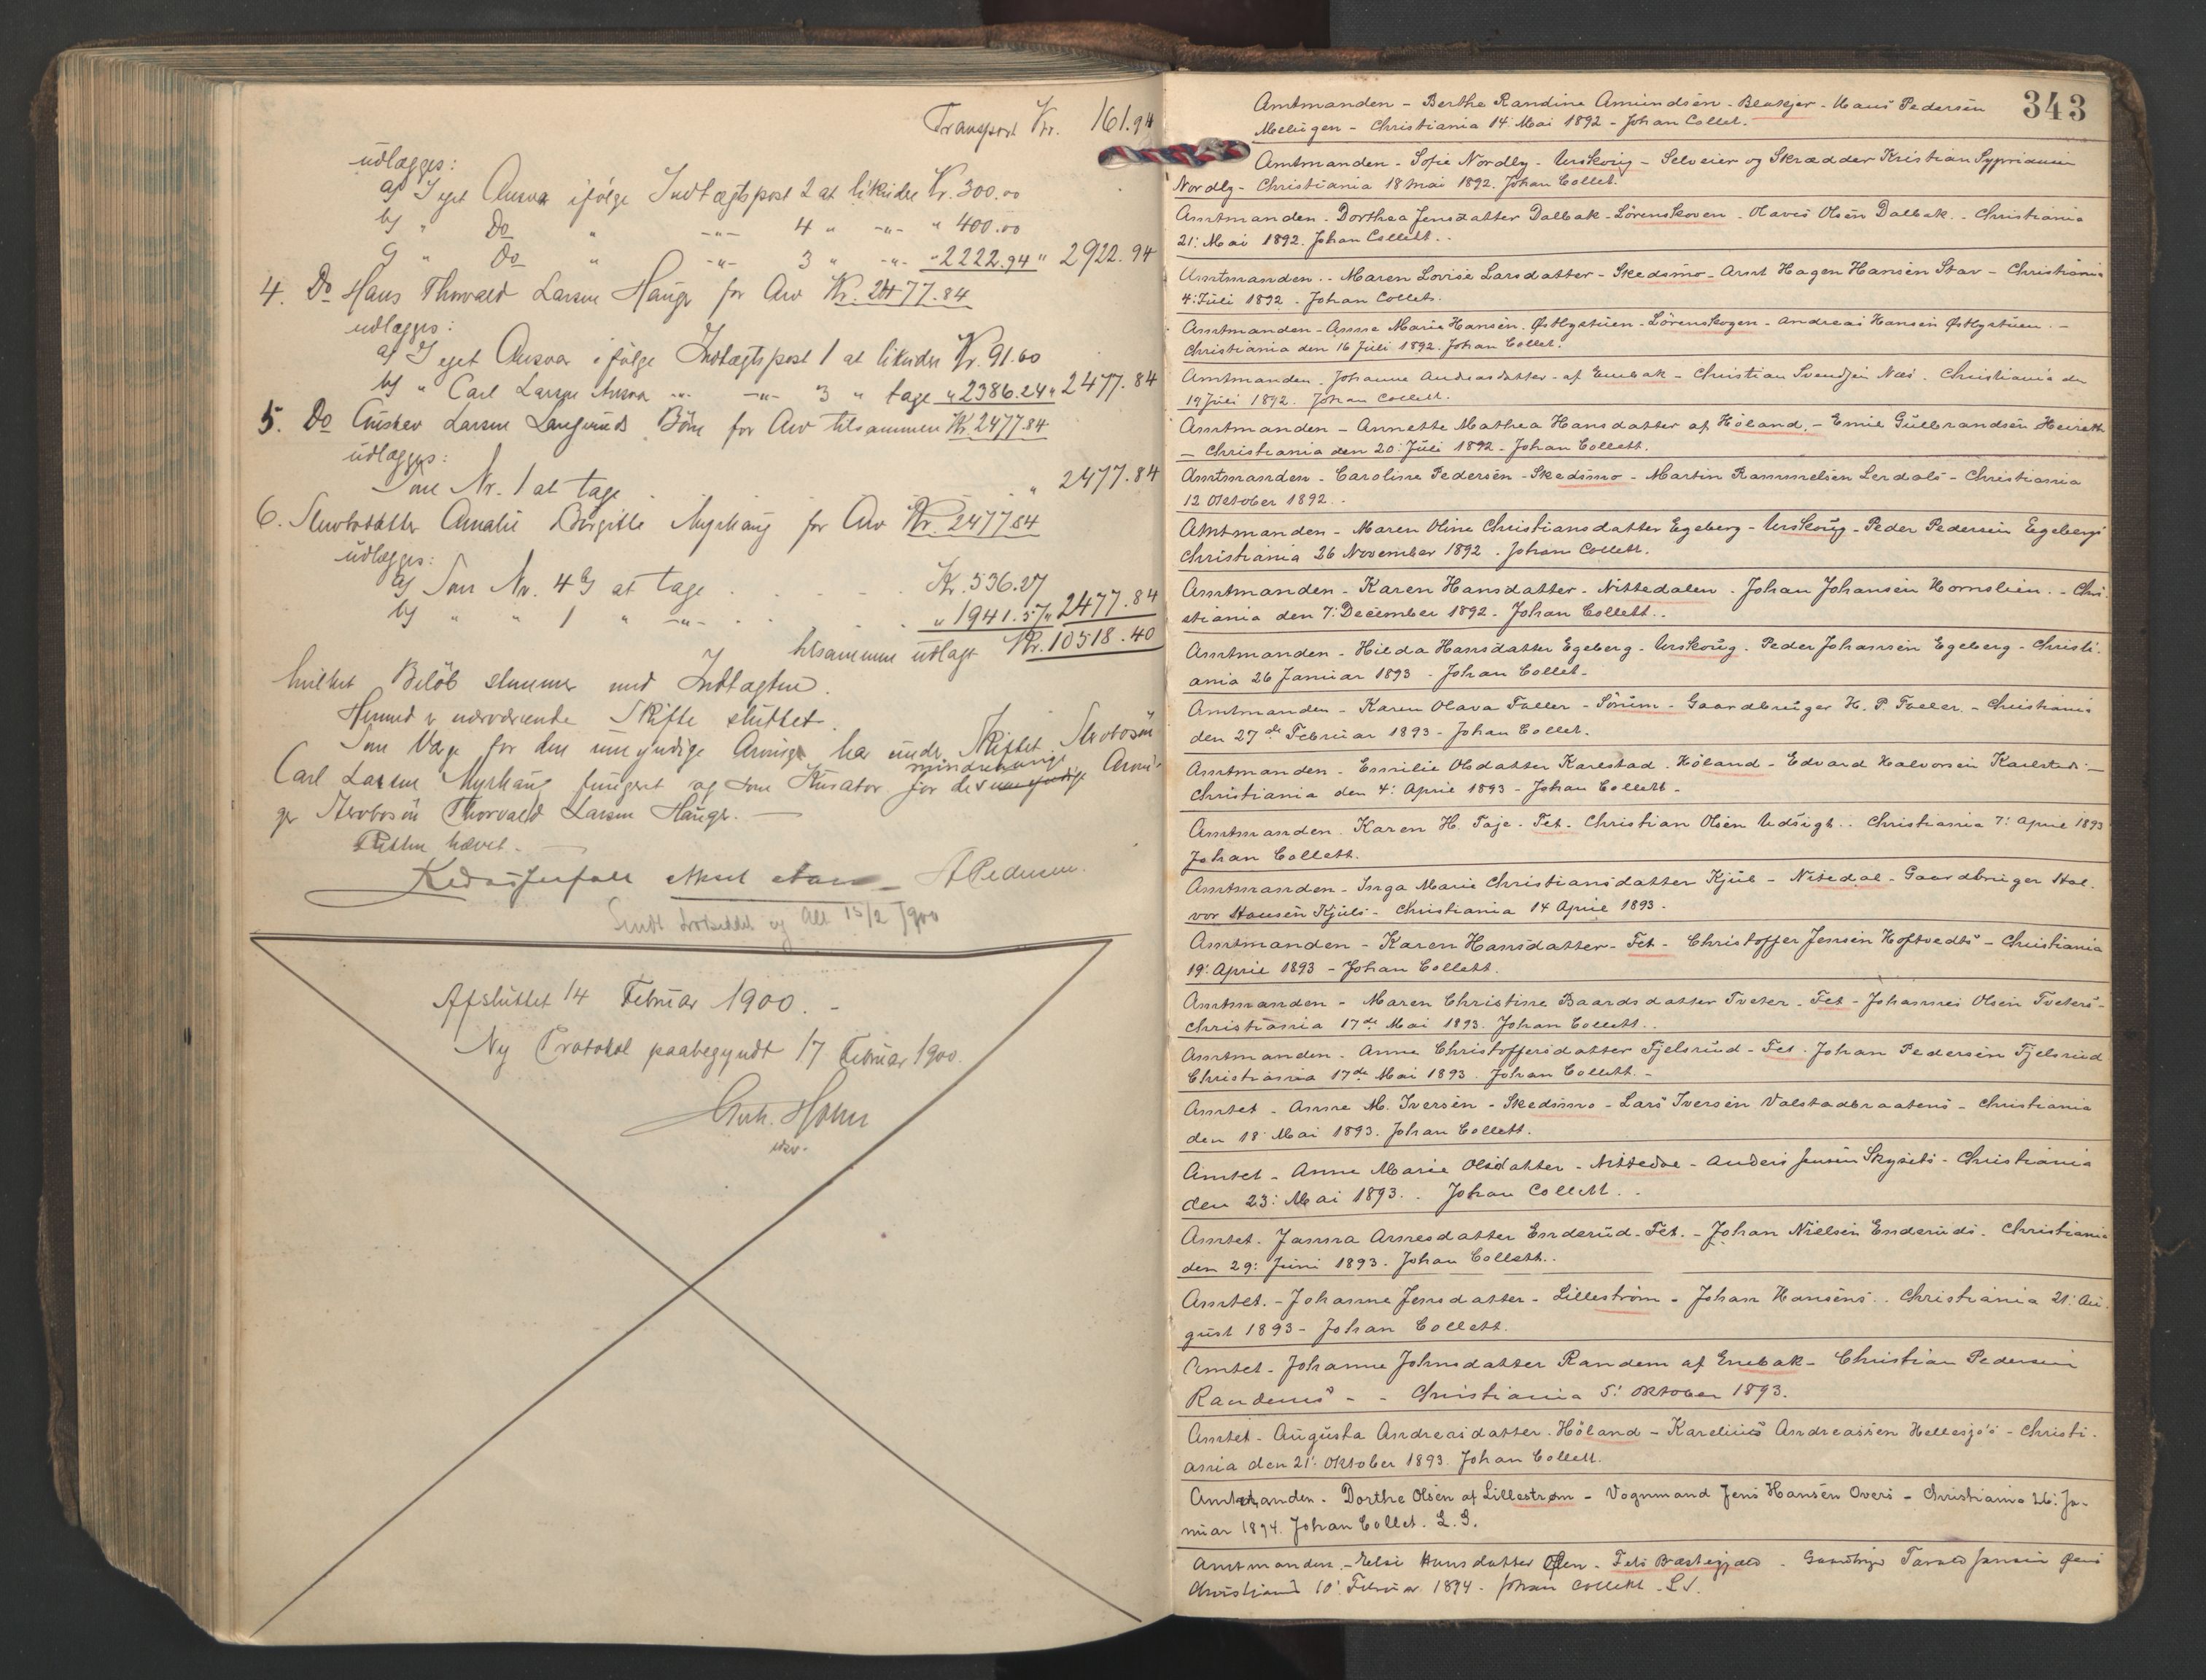 Transport Kr. 161.94
udlægges:
a) I eget Ansvar ifølge Indtægtspost 2 at likvidere Kr. 300.00
b) " Do " -"- 4 " -"- " 400.00
c) " Do " -"- 3 " -"- " 2222.94 " 2922.94
4. Do Hans Thorvald Larsen Hauger for Arv Kr. 2477.84
udlægges:
a) I eget Ansvar ifølge Indtægtspost 1 at likvidere Kr. 91.60
b) " Carl Larsens Ansvar -"- -"- 3 " tage " 2386.24 " 2477.84
5. Do Gustav Larsen Langeruds Børn for Arv tilsammen Kr. 2477 84
udlægges:
Som Nr. 1 at tage . . . . " 2477.84
6. Stervbodatter Amalie Birgitte Myrhaug for Arv Kr. 2477 84
udlægges:
a) Som Nr. 4 b) at tage . . . . Kr. 536.27
b) " " 1 " -"- . . . . " 1941.57 " 2477.84
tilsammen udlagt Kr. 10518.40
hvilket Beløb stemmer med Indtægten.
Hermed er nærværende Skifte sluttet.
Som Værge for den umyndige Arving har under Skiftet Stervbosøn
Carl Larsen Myrhaug fungeret og som Kurator for den umyndige mindreaarige Arvin-
ger Stervbosøn Thorvald Larsen Hauger. —
Retten hævet. —
A Pedersen.
Sendt og All 15/2 1900
Afsluttet 14 Februar 1900. -
Ny Protokol paabegyndt 17 Februar 1900.
Holm
343
Amtmanden - Berthe Randine Amundsen - Blakjer - Hans Pedersen
Melingen - Christiania 14: Mai 1892 - Johan Collet.
Amtmanden - Sofie Nordby - Urskoug - Selveier og Skrædder Kristian Sypriansen
Nordby - Christiania 18 Mai 1892. Johan Collet.
Amtmanden - Dorthea Jensdatter Dalbak - Lörenskoven - Olaves Olsen Dalbak. - Christiania
21: Mai 1892. Johan Collett..
Amtmanden .. Maren Lovise Larsdatter - Skedsmo - Arnt Hagen Hansen Stav - Christiania
4: Juli 1892 . Johan Collett.
Amtmanden - Anne Marie Hansen Østbystuen - Lörenskogen - Andreas Hansen Østbystuen. -
Christiania den 16 Juli 1892. Johan Collet.
Amtmanden . Johanne Andreasdatter - af Enebak - Christian Svendsen Næs . Christiania den
19 Juli 1892. Johan Collett.
Amtmanden - Annette Mathea Hansdatter af Höland. - Emil Gulbrandsen
- Christiania den 20: Juli 1892 - Johan Collett.
Amtmanden - Caroline Pedersen - Skedsmo - Martin Rammelsen Lerdals - Christiania
12 Oktober 1892. -
Amtmanden - Maren Oline Christiansdatter Egeberg - Urskoug - Peder Pedersen Egebergs
Christiania 26 November 1892 . Johan Collett.
Amtmanden - Karen Hansdatter - Nittedalen . Johan Johansen Hornslien. - Chri-
stiania den 7: December 1892 - Johan Collett..
Amtmanden - Hilda Hansdatter Egeberg - Urskoug . Peder Johansen Egeberg - Christi-
ania 26 Januar 1893 - Johan Collet -
Amtmanden - Karen Olava Foller - Sörum - Gaardbruger H. P. Foller. - Christiania
den 27de Februar 1893 - Johan Collet.
Amtmanden - Emilie Olsdatter Karlstad . Höland - Edvard Halvorsen Karlstad. -
Christiania den 4: April 1893 - Johan Collett -
Amtmanden . Karen H. Taje - Fet - Christian Olsen Udsigt .. Christiania 7: April 1893
Johan Collett.
Amtmanden - Inga Marie Christiansdatter Kjul - Nitedal - Gaardbruger Hal-
vor Hansen Kjuls - Christiania 14 April 1893 -
Amtmanden - Karen Hansdatter - Fet - Christoffer Jensen Hoftvedts - Christiania
19: April 1893 - Johan Collett.
Amtmanden - Maren Christine Baardsdatter Tveter - Fet - Johannes Olsen Tveters -
Christiania 17de Mai 1893. Johan Collett..
Amtmanden - Anne Christoffersdatter Fjelsrud - Fet . Johan Pedersen Fjelsrud
Christiania 17de Mai 1893. Johan Collett. -
Amtet - Anne M. Iversen - Skedsmo - Lars Iversen Valstadbraatens - Christiania
den 18 Mai 1893. Johan Collett.
Amtet - Anne Marie Olsdatter - Nittedal - Anders Jensen Skysets - Christiania
den 23: Mai 1893. . Johan Collett . .
Amtet . Janna Arnesdatter Enderud - Fet. - Johan Nielsen Enderuds . Christiania
den 29: Juni 1893. Johan Collett..
Amtet. - Johanne Jensdatter - Lilleström - Johan Hansens .. Christiania 21: Au-
gust 1893 - Johan Collett.
Amtet - Johanne Johnsdatter Randem af Enebak - Christian Pedersen
Randems - - Christiania 5: Oktober 1893.
Amtet - Augusta Andreasdatter . Höland - Karelius Andreassen Hellesjö's - Christi-
ania den 21: Oktober 1893. Johan Collett.
Amtmanden - Dorthe Olsen af Lillestrøm - Vognmand Jens Hansen Overs - Christiania 26: Ja-
nuar 1894. Johan Collet. L. S.
Amtmanden - Else Hansdatter - Fets Præstegjæld - Gaardbruger Tarald Jensen
Christiania 10: Februar 1894. Johan Collett. L S.